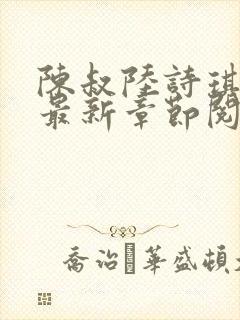 陳叔陸詩琪
最新章節閱
喬治·華盛頓·